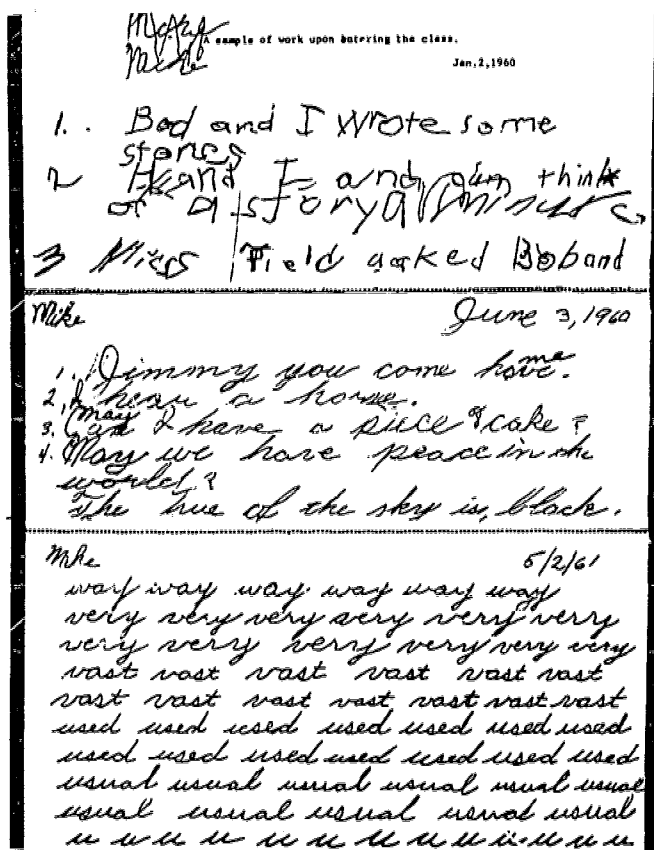 A sample of work upon entering the class.
Mike
Jan.2,1960
1. . Bod and I wrote some
stories
2 and I and think
of a story a minute
3 Miss Field asked Bob and
Mike June 3, 1960
1. Jimmy you come home.
2. I hear a horse.
3. may I have a piece of cake?
4. May we have peace in the
world?
The hue of the sky is black.
Mike 5/2/61
way way way way way way
very very very very very very
very very very very very very
vast vast vast vast vast vast
vast vast vast vast vast vast vast
used used used used used used used
used used used used used used used
usual usual usual usual usual usual
usual usual usual usual usual
u u u u u u u u u u u u u